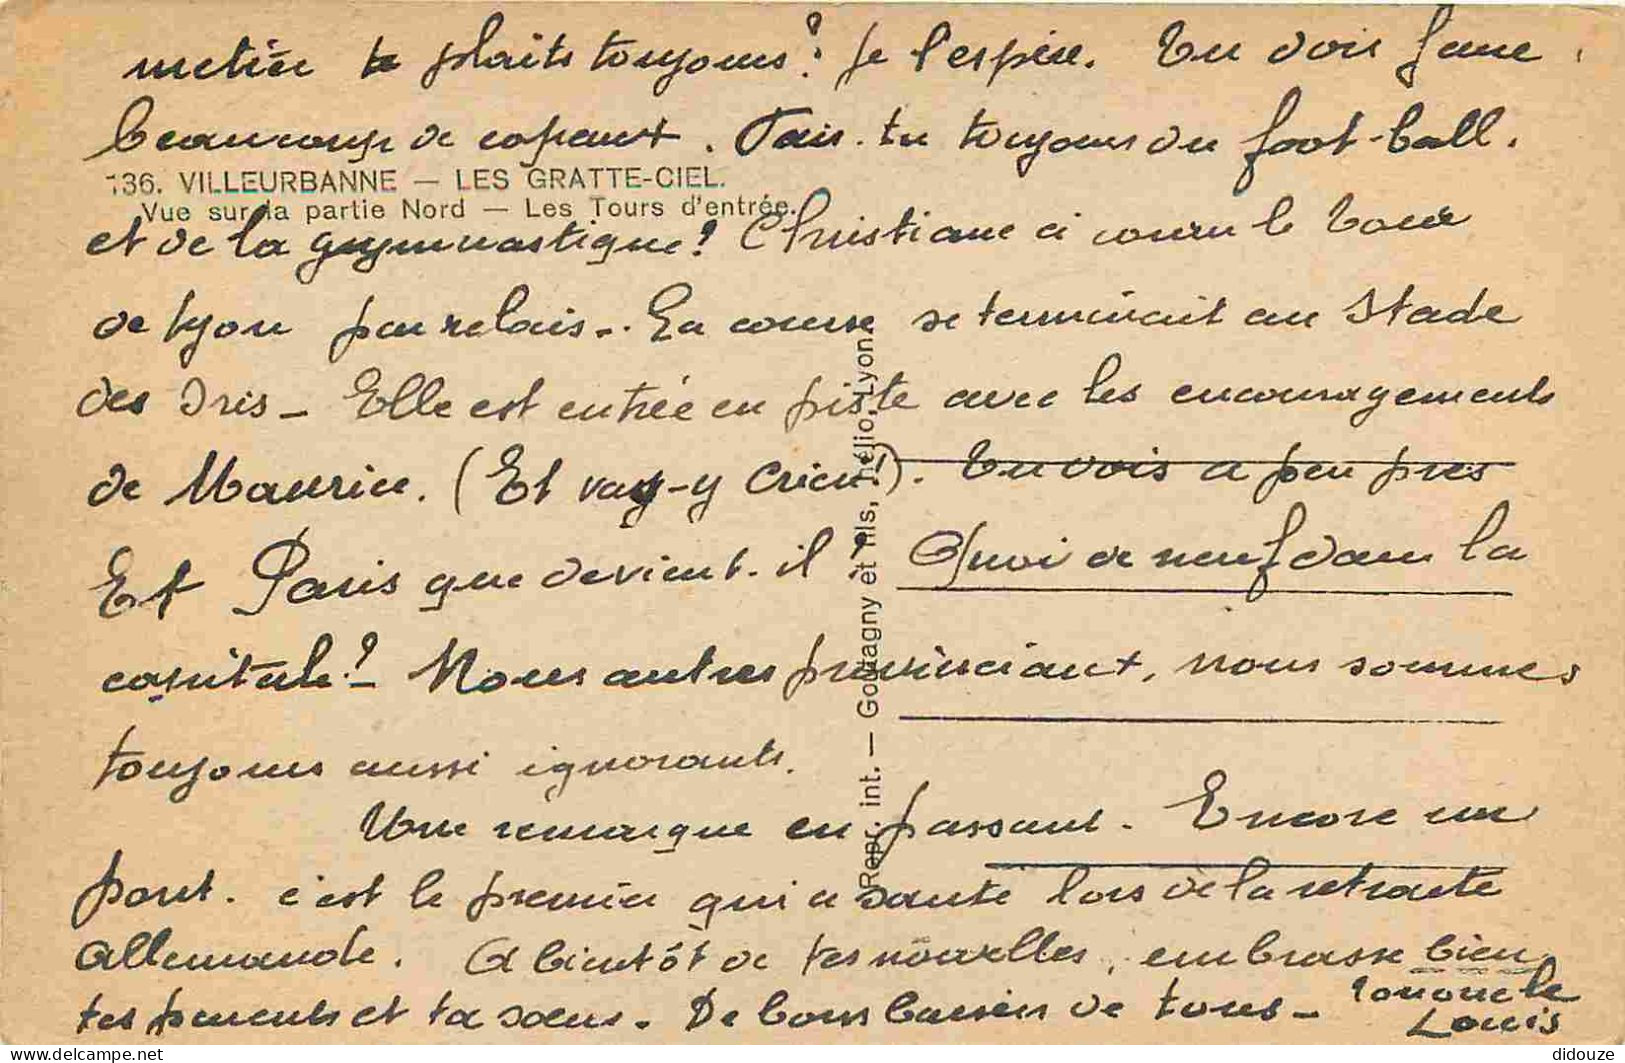 métier te plaits toujours? Je l'espère. Tu dois faire
beaucoup de copeaux. Fais-tu toujours du foot-ball.
136. VILLEURBANNE — LES GRATTE-CIEL.
Vue sur la partie Nord — Les Tours d'entrée.
et de la gymnastique? Christiane a couru le tour
de Lyon par relais-. La course se terminait au Stade
des Iris - Elle est entrée en piste avec les encouragements
de Maurice. (Et vas-y crier!). Tu vois a peu près
Et Paris que devient-il? Quoi de neuf dans la
capitale? - Nous autres provinciaux, nous sommes
toujours aussi ignorants.
Une remarque en passant. Encore un
pont. c'est le premier qui a sauté lors de la retraite
allemande. A bientôt de tes nouvelles, embrasse bien
tes parents et ta soeur. De bons baisers de tous - Ton oncle
Louis
Repr. int. — Gouttagny et fils, hélio, Lyon.
didouze
www.delcampe.net